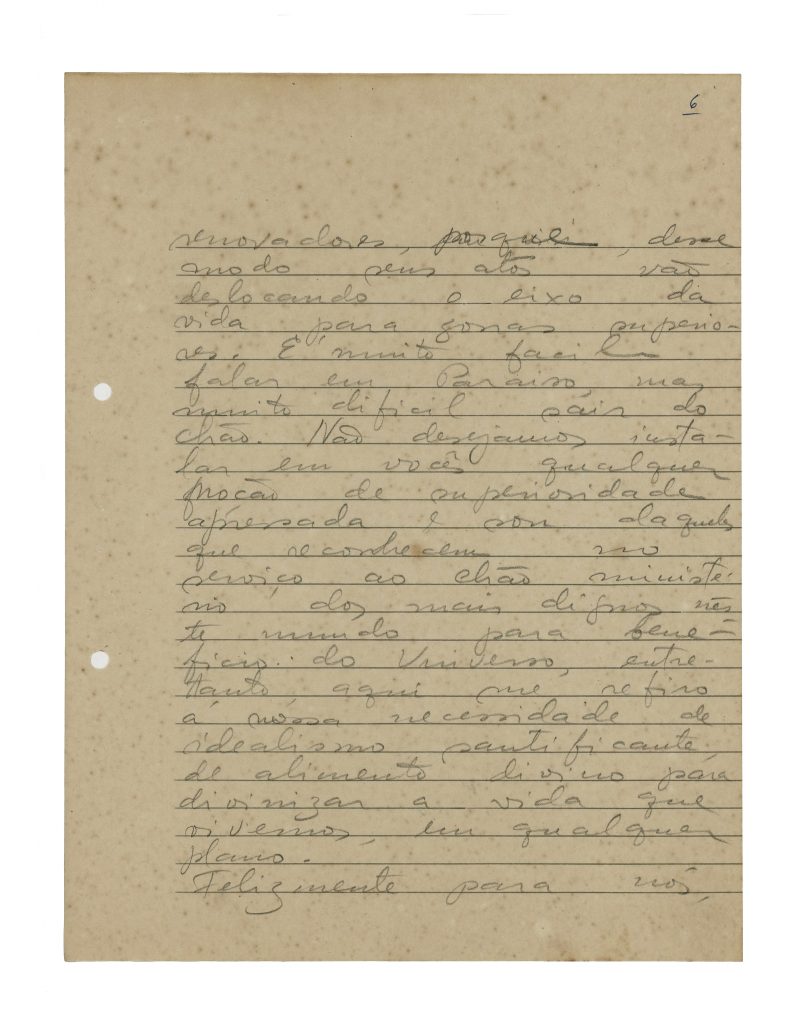 6
renovadores, porque, desse
modo seus atos vão
deslocando o eixo da
vida para zonas superio-
res. É muito facil
falar em Paraiso, mas
muito dificil sáir do
chão. Não desejamos insta-
lar em vocês qualquer
noção de superioridade
apressada e sou daqueles
que reconhecem no
serviço ao chão ministé-
rio dos mais dignos nês
te mundo para bene-
ficio do Universo, entre-
tanto, aqui me refiro
á nossa necessidade de
idealismo santificante,
de alimento divino para
divinizar a vida que
vivemos, em qualquer
plano.
Felizmente para nós,